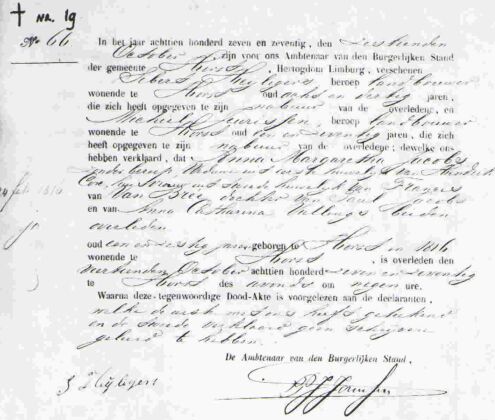 † nr. 19
No 66
In het jaar achttien honderd zeven en zeventig, den zestienden
October zijn voor ons Ambtenaar van den Burgerlijken Stand
der gemeente Horst, Hertogdom Limburg, verschenen
beroep landbouwer
wonende te Horst oud acht en dertig jaren,
die zich heeft opgegeven te zijn nabuur van de overledene, en
Michiel Jeurissen, beroep landbouwer
wonende te Horst oud en zeventig jaren, die zich
heeft opgegeven te zijn nabuur van de overledene; dewelke ons
hebben verklaard, dat Anna Margaretha Jacobs
zonder beroep Weduwe uit eerste huwelijk van Hendrik
huwelijk van
van van Bree dochter van Jacobs
en van Anna Catharina beiden
overleden
oud een en zestig jaren geboren te Horst in 1816
wonende te Horst, is overleden den
veertienden October achttien honderd zeven en zeventig
te Horst des avonds om negen ure.
Waarna deze tegenwoordige Dood-Akte is voorgelezen aan de declaranten,
welke de eerste met ons heeft geteekend
en de tweede verklaard geen schrijven
geleerd te hebben.
De Ambtenaar van den Burgerlijken Stand,